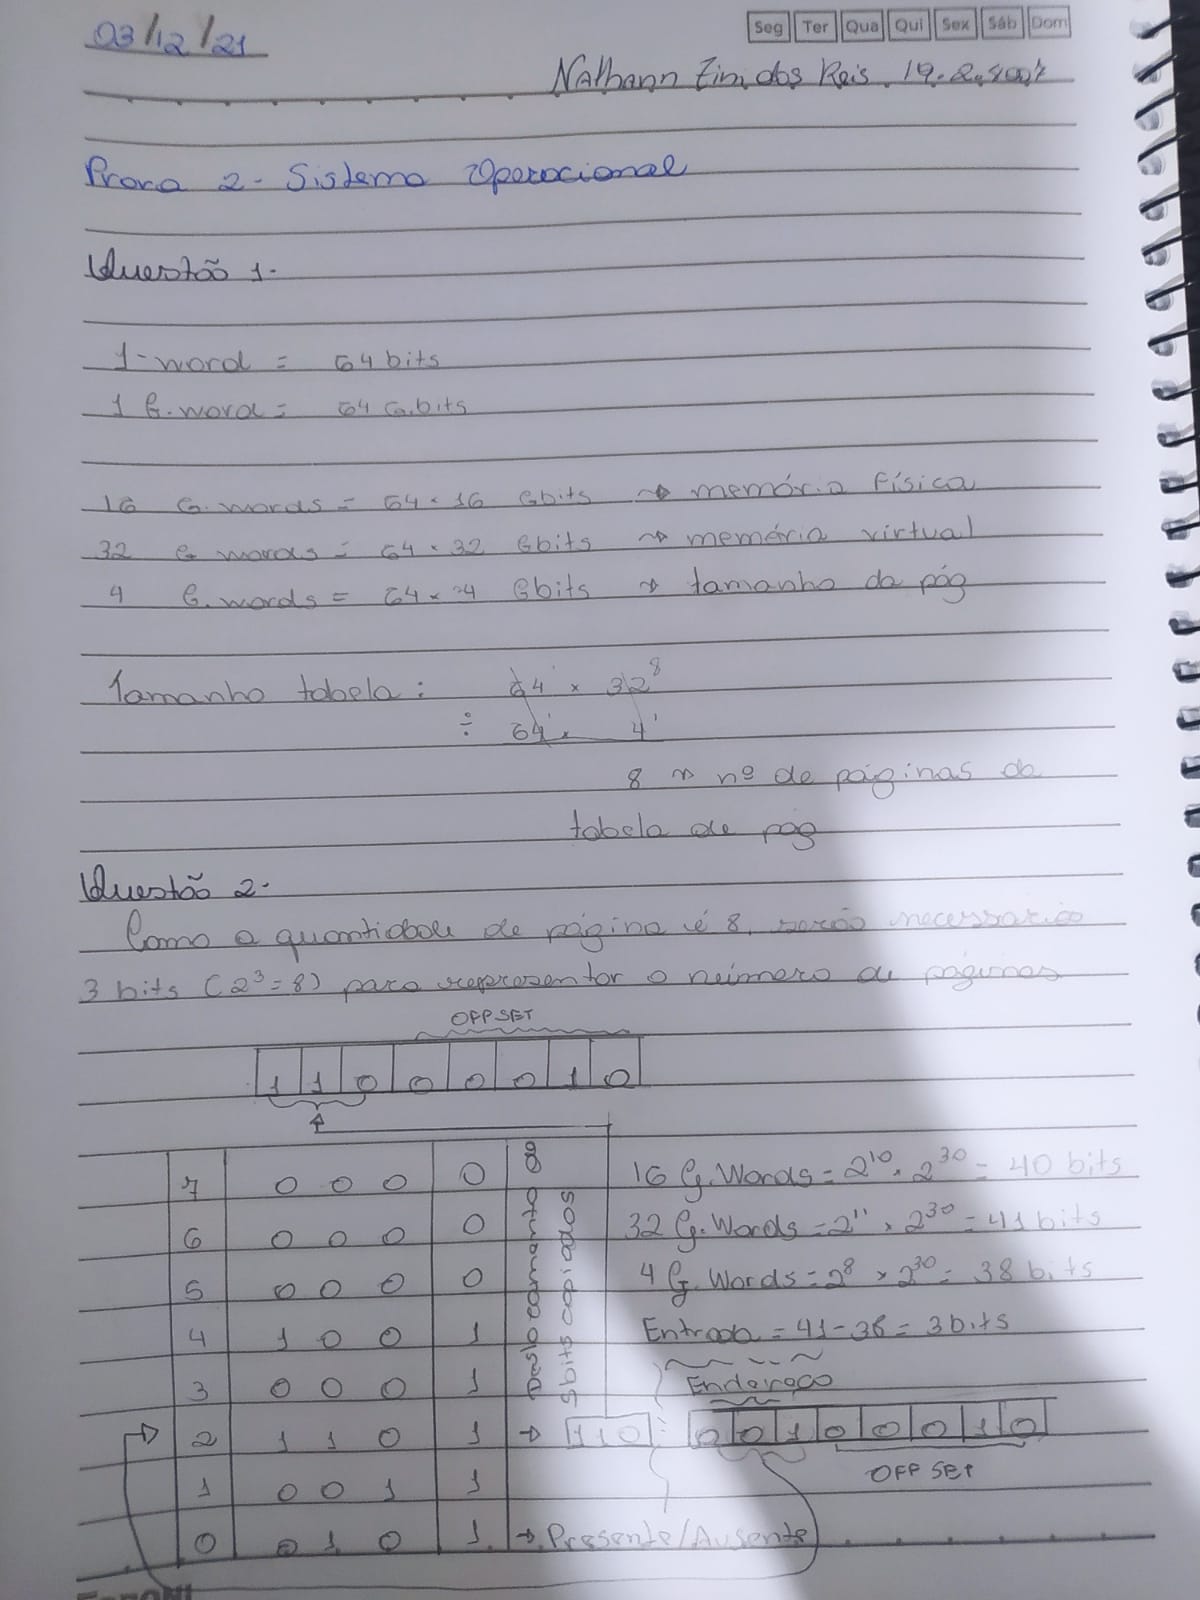 03/12/21
Seg Ter Qua Qui Sex Sáb Dom
Nathann Zini dos Reis. 19.2.4007
Prova 2 - Sistema Operacional
Questão 1-
1-word = 64 bits
1 G.word = 64 G.bits
16 G.words = 64 × 16 Gbits → memória física
32 G words = 64 × 32 Gbits → memória virtual
4 G.words = 64 × 4 Gbits → tamanho da pág
Tamanho tabela: 64¹ × 32⁸
÷ 64¹ × 4¹
8 → nº de páginas da
tabela de pág
Questão 2-
Como a quantidade de página é 8, serão necessário
3 bits (2³ = 8) para representar o número de páginas
OFFSET
1 1 0 0 0 0 1 0
7 0 0 0 0
6 0 0 0 0
5 0 0 0 0
4 1 0 0 1
3 0 0 0 1
2 1 1 0 1 → 110
1 0 0 1 1
0 0 1 0 1 → Presente/Ausente
Deslocamento de
5bits copiados
16 G.Words = 2¹⁰ · 2³⁰ = 40 bits
32 G.Words = 2¹¹ × 2³⁰ = 41 bits
4 G.Words = 2⁸ × 2³⁰ = 38 bits
Entrada = 41 - 38 = 3 bits
Endereço
0 0 1 0 0 0 1 0
OFF SET